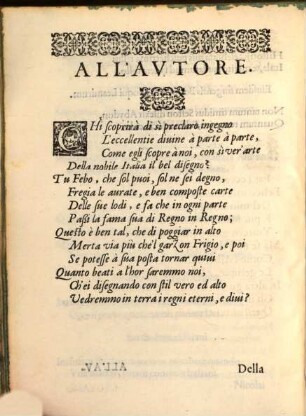 ALL'AVTORE.
CHi scoprirà di sì preclaro ingegno
L'eccellentie diuine à parte à parte,
Come egli scopre à noi, con sì ver'arte
Della nobile Italia il bel disegno?
Tu Febo, che sol puoi, sol ne sei degno,
Fregia le aurate, e ben composte carte
Delle sue lodi, e fa che in ogni parte
Passi la fama sua di Regno in Regno;
Questo è ben tal, che di poggiar in alto
Merta via più che'l garzon Frigio, e poi
Se potesse à sua posta tornar quiui
Quanto beati a l'hor saremmo noi,
Ch'ei disegnando con stil vero ed alto
Vedremmo in terra i regni eterni, e diui?
Della